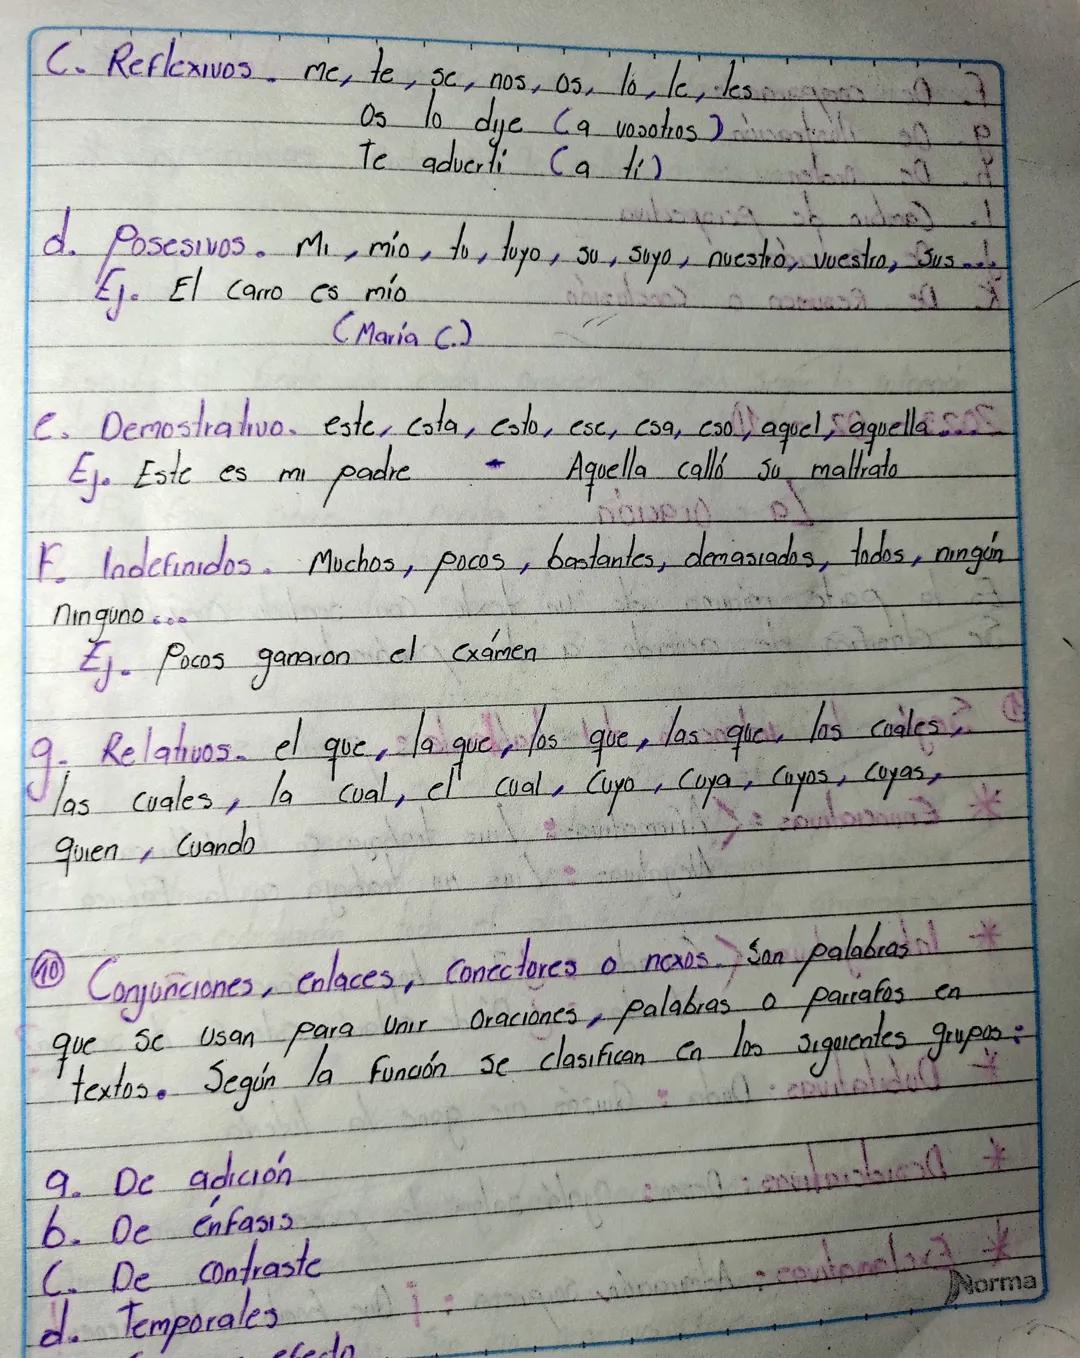 C. Reflexivos. me, te, se, nos, os, lo, le, les
Os lo dye (a vosotros)
Te advertí (a tí)
d. Posesivos. Mi, mío, tu, tuyo, su, suyo, nuestro, vuestro, sus...
Ej. El carro es mío
(María C.)
e. Demostrativo. este, esta, esto, ese, esa, eso, aquel, aquella...
Ej. Este es mi padre - Aquella calló su maltrato
F. Indefinidos. Muchos, pocos, bastantes, demasiados, todos, ningún
ninguno...
Ej. Pocos ganaron el exámen
g. Relativos. el que, la que, los que, las que, los cuales,
las cuales, la cual, el cual, cuyo, cuya, cuyos, cuyas,
quien, cuando
10 Conjunciones, enlaces, conectores o nexos. Son palabras
que se usan para unir oraciones, palabras o parrafos en
textos. Según la función se clasifican en los siguientes grupos:
a. De adición
b. De énfasis
C. De contraste
d. Temporales
efecto
Norma